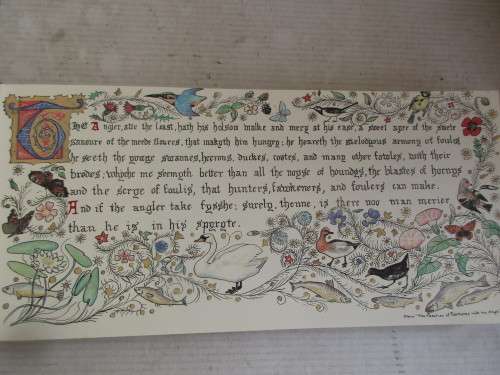 THE Angler, atte the leest, hath his holsom walke and mery at his ease, a sweet ayre of the swete
savoure of the meede floures, that makyth him hungry; he heareth the melodyous armony of foules,
he seeth the yonge swannes, heerons, duckes, cotes, and many other fowles, with their
brodes; whyche me seemyth better than all the noyse of houndys, the blastes of hornys
and the scrye of foulis, that hunters, fawkeners, and foulers can make.
And if the angler take fysshe; surely, thenne, is there noo man merier
than he is in his spyryte.
From "The Treatise of Fysshynge with an Angle